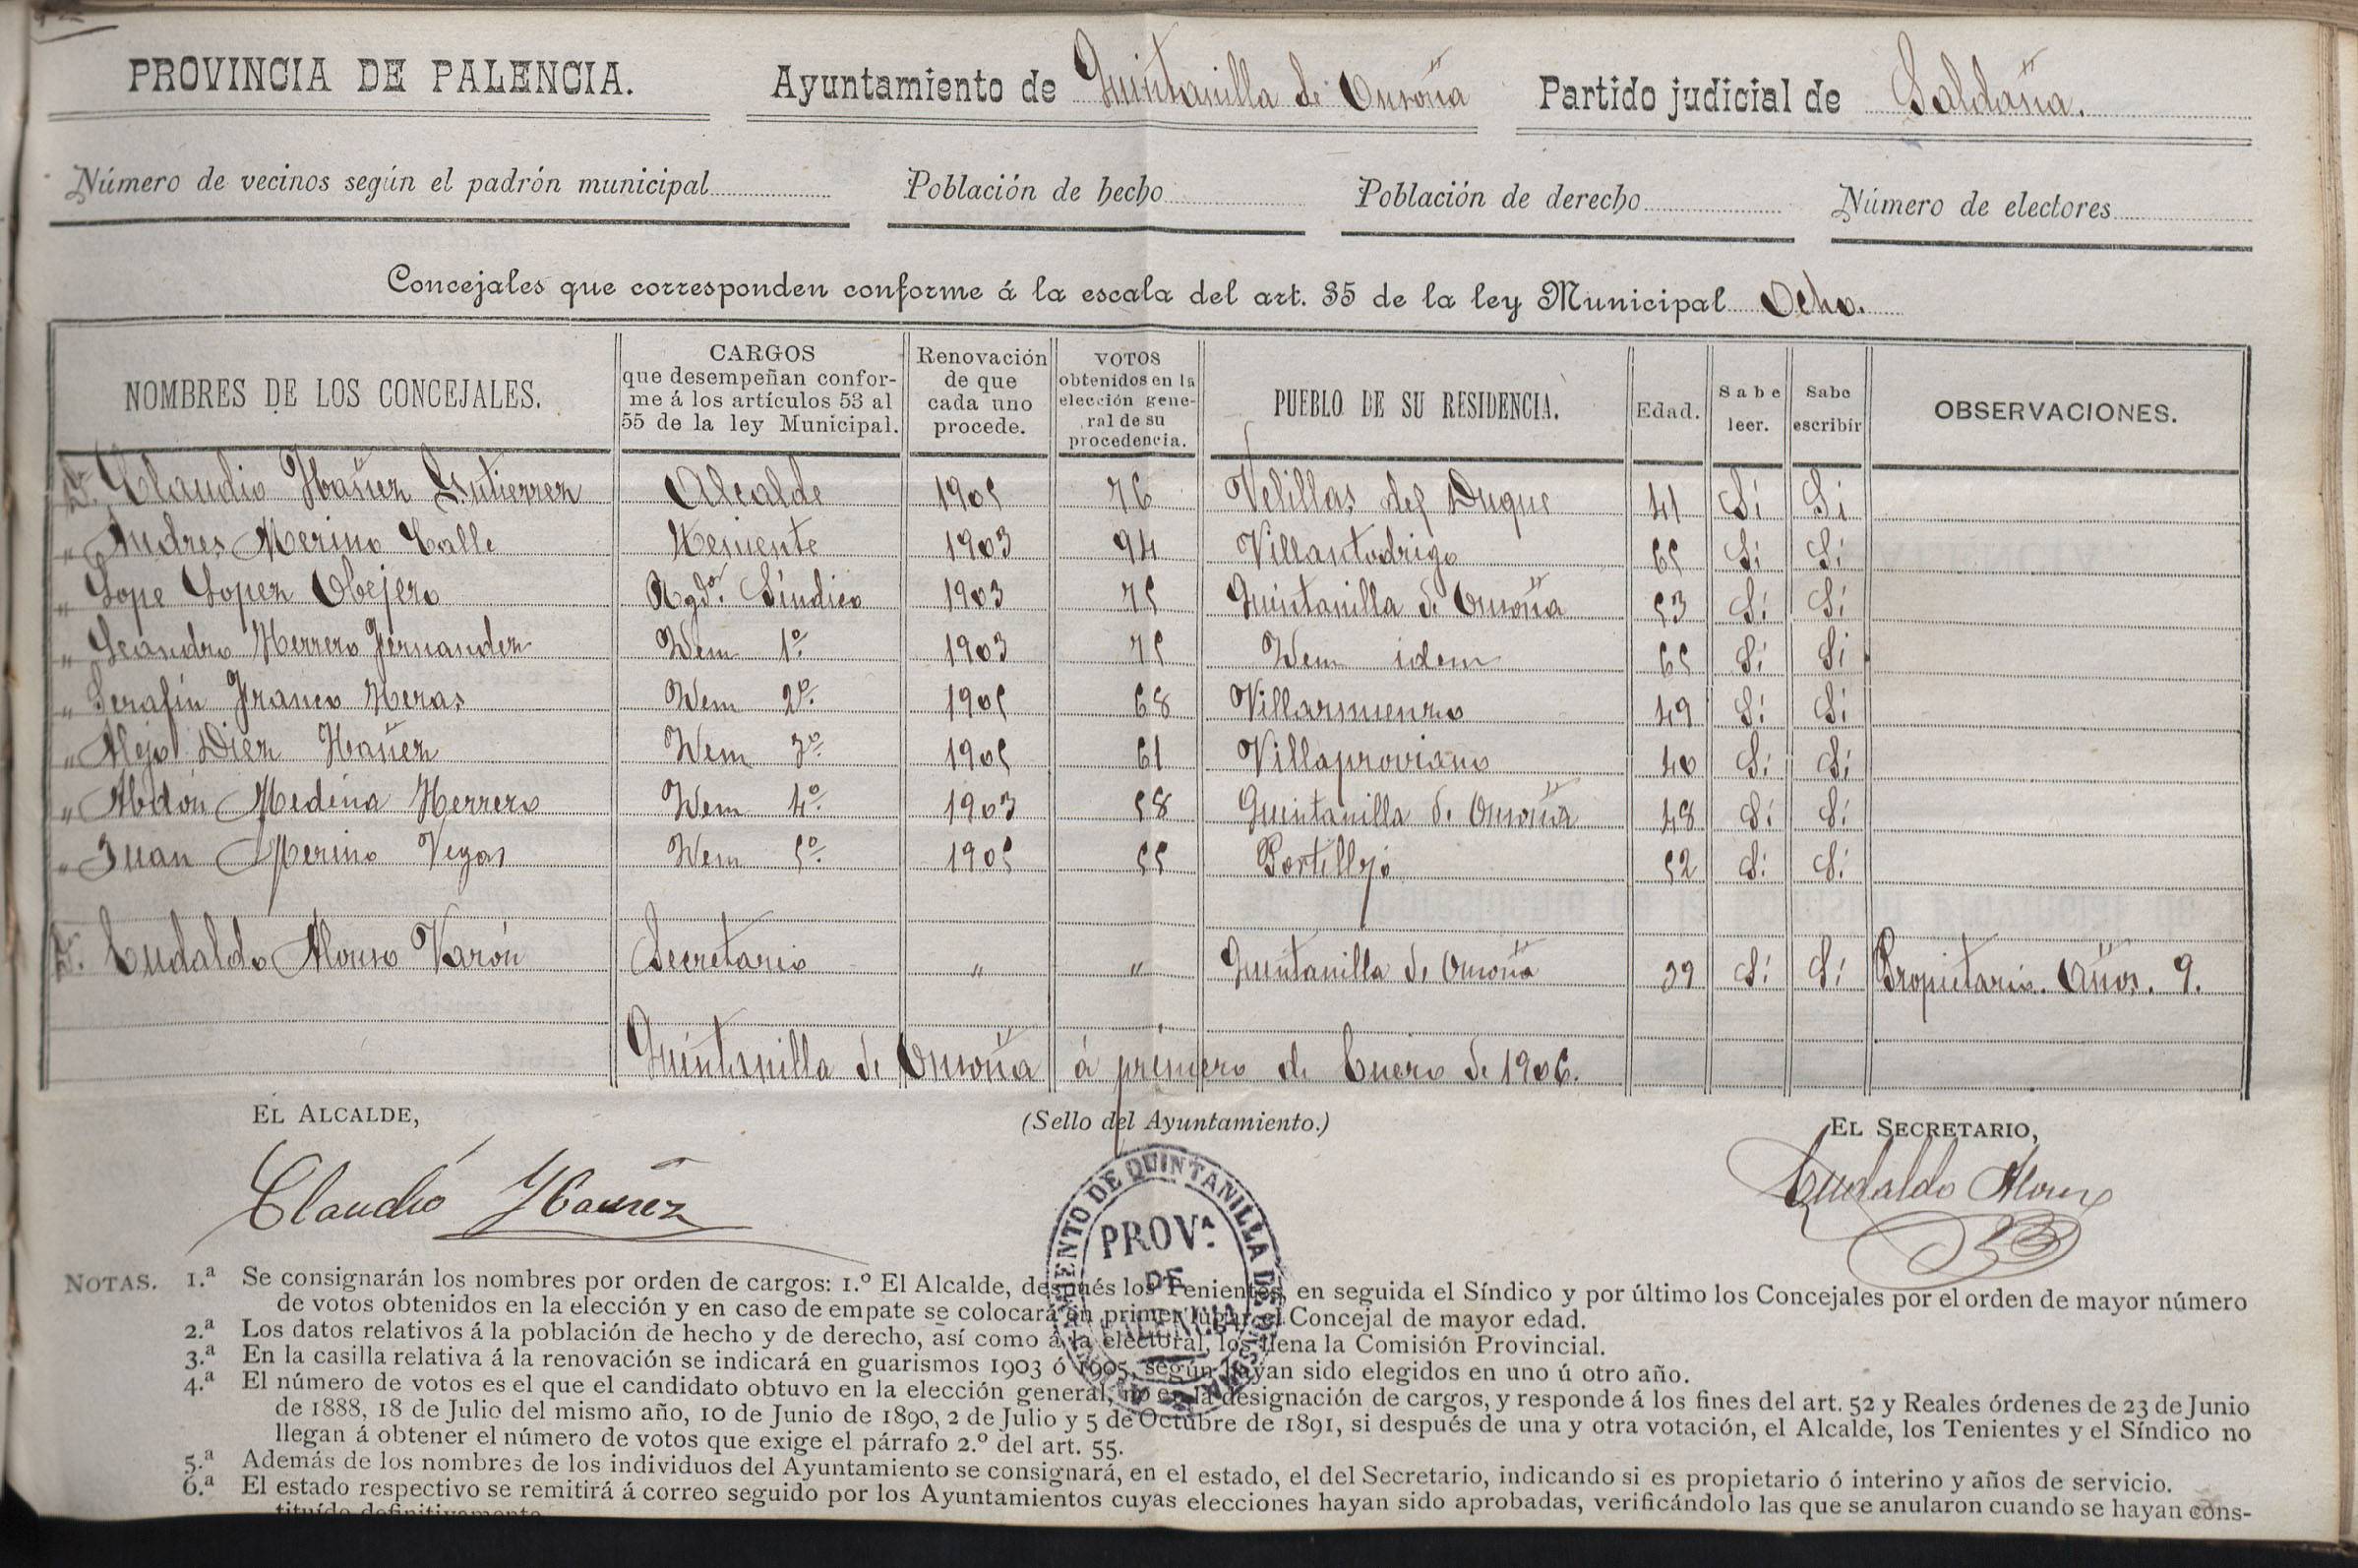 PROVINCIA DE PALENCIA. Ayuntamiento de Quintanilla de Onsoña Partido judicial de Saldaña.
Número de vecinos según el padrón municipal Población de hecho Población de derecho Número de electores
Concejales que corresponden conforme á la escala del art. 35 de la ley Municipal Ocho.
NOMBRES DE LOS CONCEJALES.
CARGOS
que desempeñan confor-
me á los artículos 53 al
55 de la ley Municipal.
Renovación
de que
cada uno
procede.
VOTOS
obtenidos en la
elección gene-
ral de su
procedencia.
PUEBLO DE SU RESIDENCIA.
Edad.
Sabe
leer.
Sabe
escribir
OBSERVACIONES.
D. Claudio Ibañez Gutierrez Alcalde 1905 76 Velillas del Duque 41 Sí Si
" Andres Merino Calle Teniente 1903 94 Villantodrigo 65 Si Si
" Lope Lopez Obejero Rgdor. Síndico 1903 75 Quintanilla de Onsoña 53 Si Si
" Leandro Herrero Fernandez Idem 1º. 1903 75 Idem idem 65 Si Si
" Serafín Franco Heras Idem 2º. 1905 68 Villarmienzo 49 Si Si
" Alejo Diez Ibañez Idem 3º. 1905 61 Villaproviano 40 Si Si
" Abdón Medina Herrero Idem 4º. 1903 58 Quintanilla de Onsoña 48 Si Si
" Juan Merino Vegas Idem 5º. 1905 55 Portillejo 52 Si Si
D. Eudaldo Alonso Varón Secretario " " Quintanilla de Onsoña 39 Si Si Propietario. Años. 9.
Quintanilla de Onsoña á primero de Enero de 1906.
EL ALCALDE, (Sello del Ayuntamiento.) EL SECRETARIO,
Claudio Ibañez
Eudaldo Alonso
AYUNTAMIENTO DE QUINTANILLA DE ONSOÑA
PROVª.
DE
PALENCIA
NOTAS. 1.ª Se consignarán los nombres por orden de cargos: 1.º El Alcalde, después los Tenientes, en seguida el Síndico y por último los Concejales por el orden de mayor número
de votos obtenidos en la elección y en caso de empate se colocará en primer lugar el Concejal de mayor edad.
2.ª Los datos relativos á la población de hecho y de derecho, así como á la electoral, los llena la Comisión Provincial.
3.ª En la casilla relativa á la renovación se indicará en guarismos 1903 ó 1905, según hayan sido elegidos en uno ú otro año.
4.ª El número de votos es el que el candidato obtuvo en la elección general, no en la designación de cargos, y responde á los fines del art. 52 y Reales órdenes de 23 de Junio
de 1888, 18 de Julio del mismo año, 10 de Junio de 1890, 2 de Julio y 5 de Octubre de 1891, si después de una y otra votación, el Alcalde, los Tenientes y el Síndico no
llegan á obtener el número de votos que exige el párrafo 2.º del art. 55.
5.ª Además de los nombres de los individuos del Ayuntamiento se consignará, en el estado, el del Secretario, indicando si es propietario ó interino y años de servicio.
6.ª El estado respectivo se remitirá á correo seguido por los Ayuntamientos cuyas elecciones hayan sido aprobadas, verificándolo las que se anularon cuando se hayan cons-
tituído definitivamente.